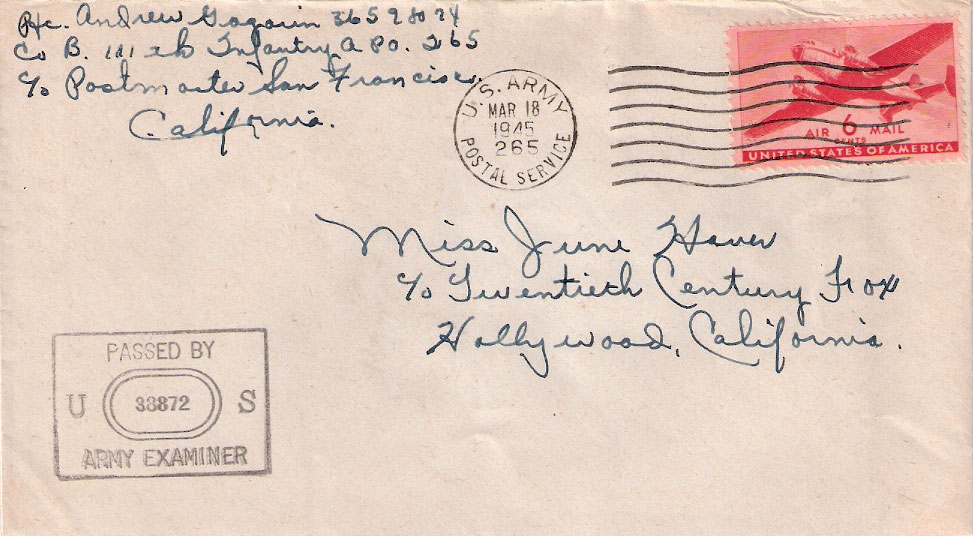 Pfc. Andrew Gagarin 36592074
Co B. 111th Infantry A Po. 265
c/o Postmaster San Francisco,
California.
U.S. ARMY
MAR 18
1945
265
POSTAL SERVICE
AIR 6 MAIL
CENTS
UNITED STATES OF AMERICA
Miss June Haver
c/o Twentieth Century Fox
Hollywood, California.
PASSED BY
U 33872 S
ARMY EXAMINER